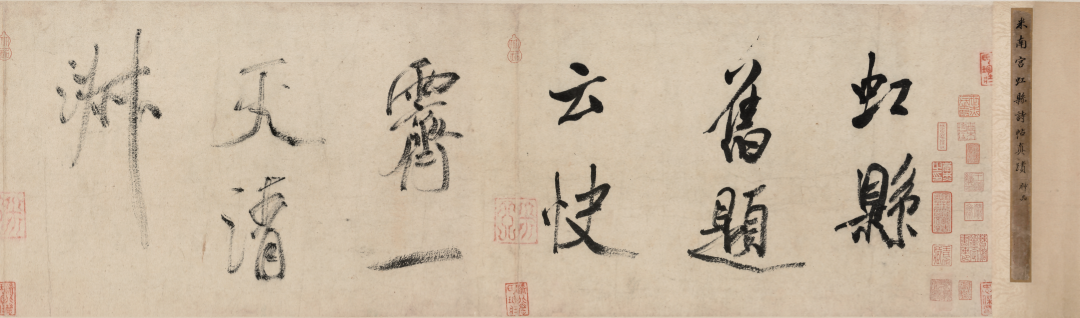 米南宮虹縣詩帖真蹟 神品
虹縣
舊題
云快
霽一
天清
淑